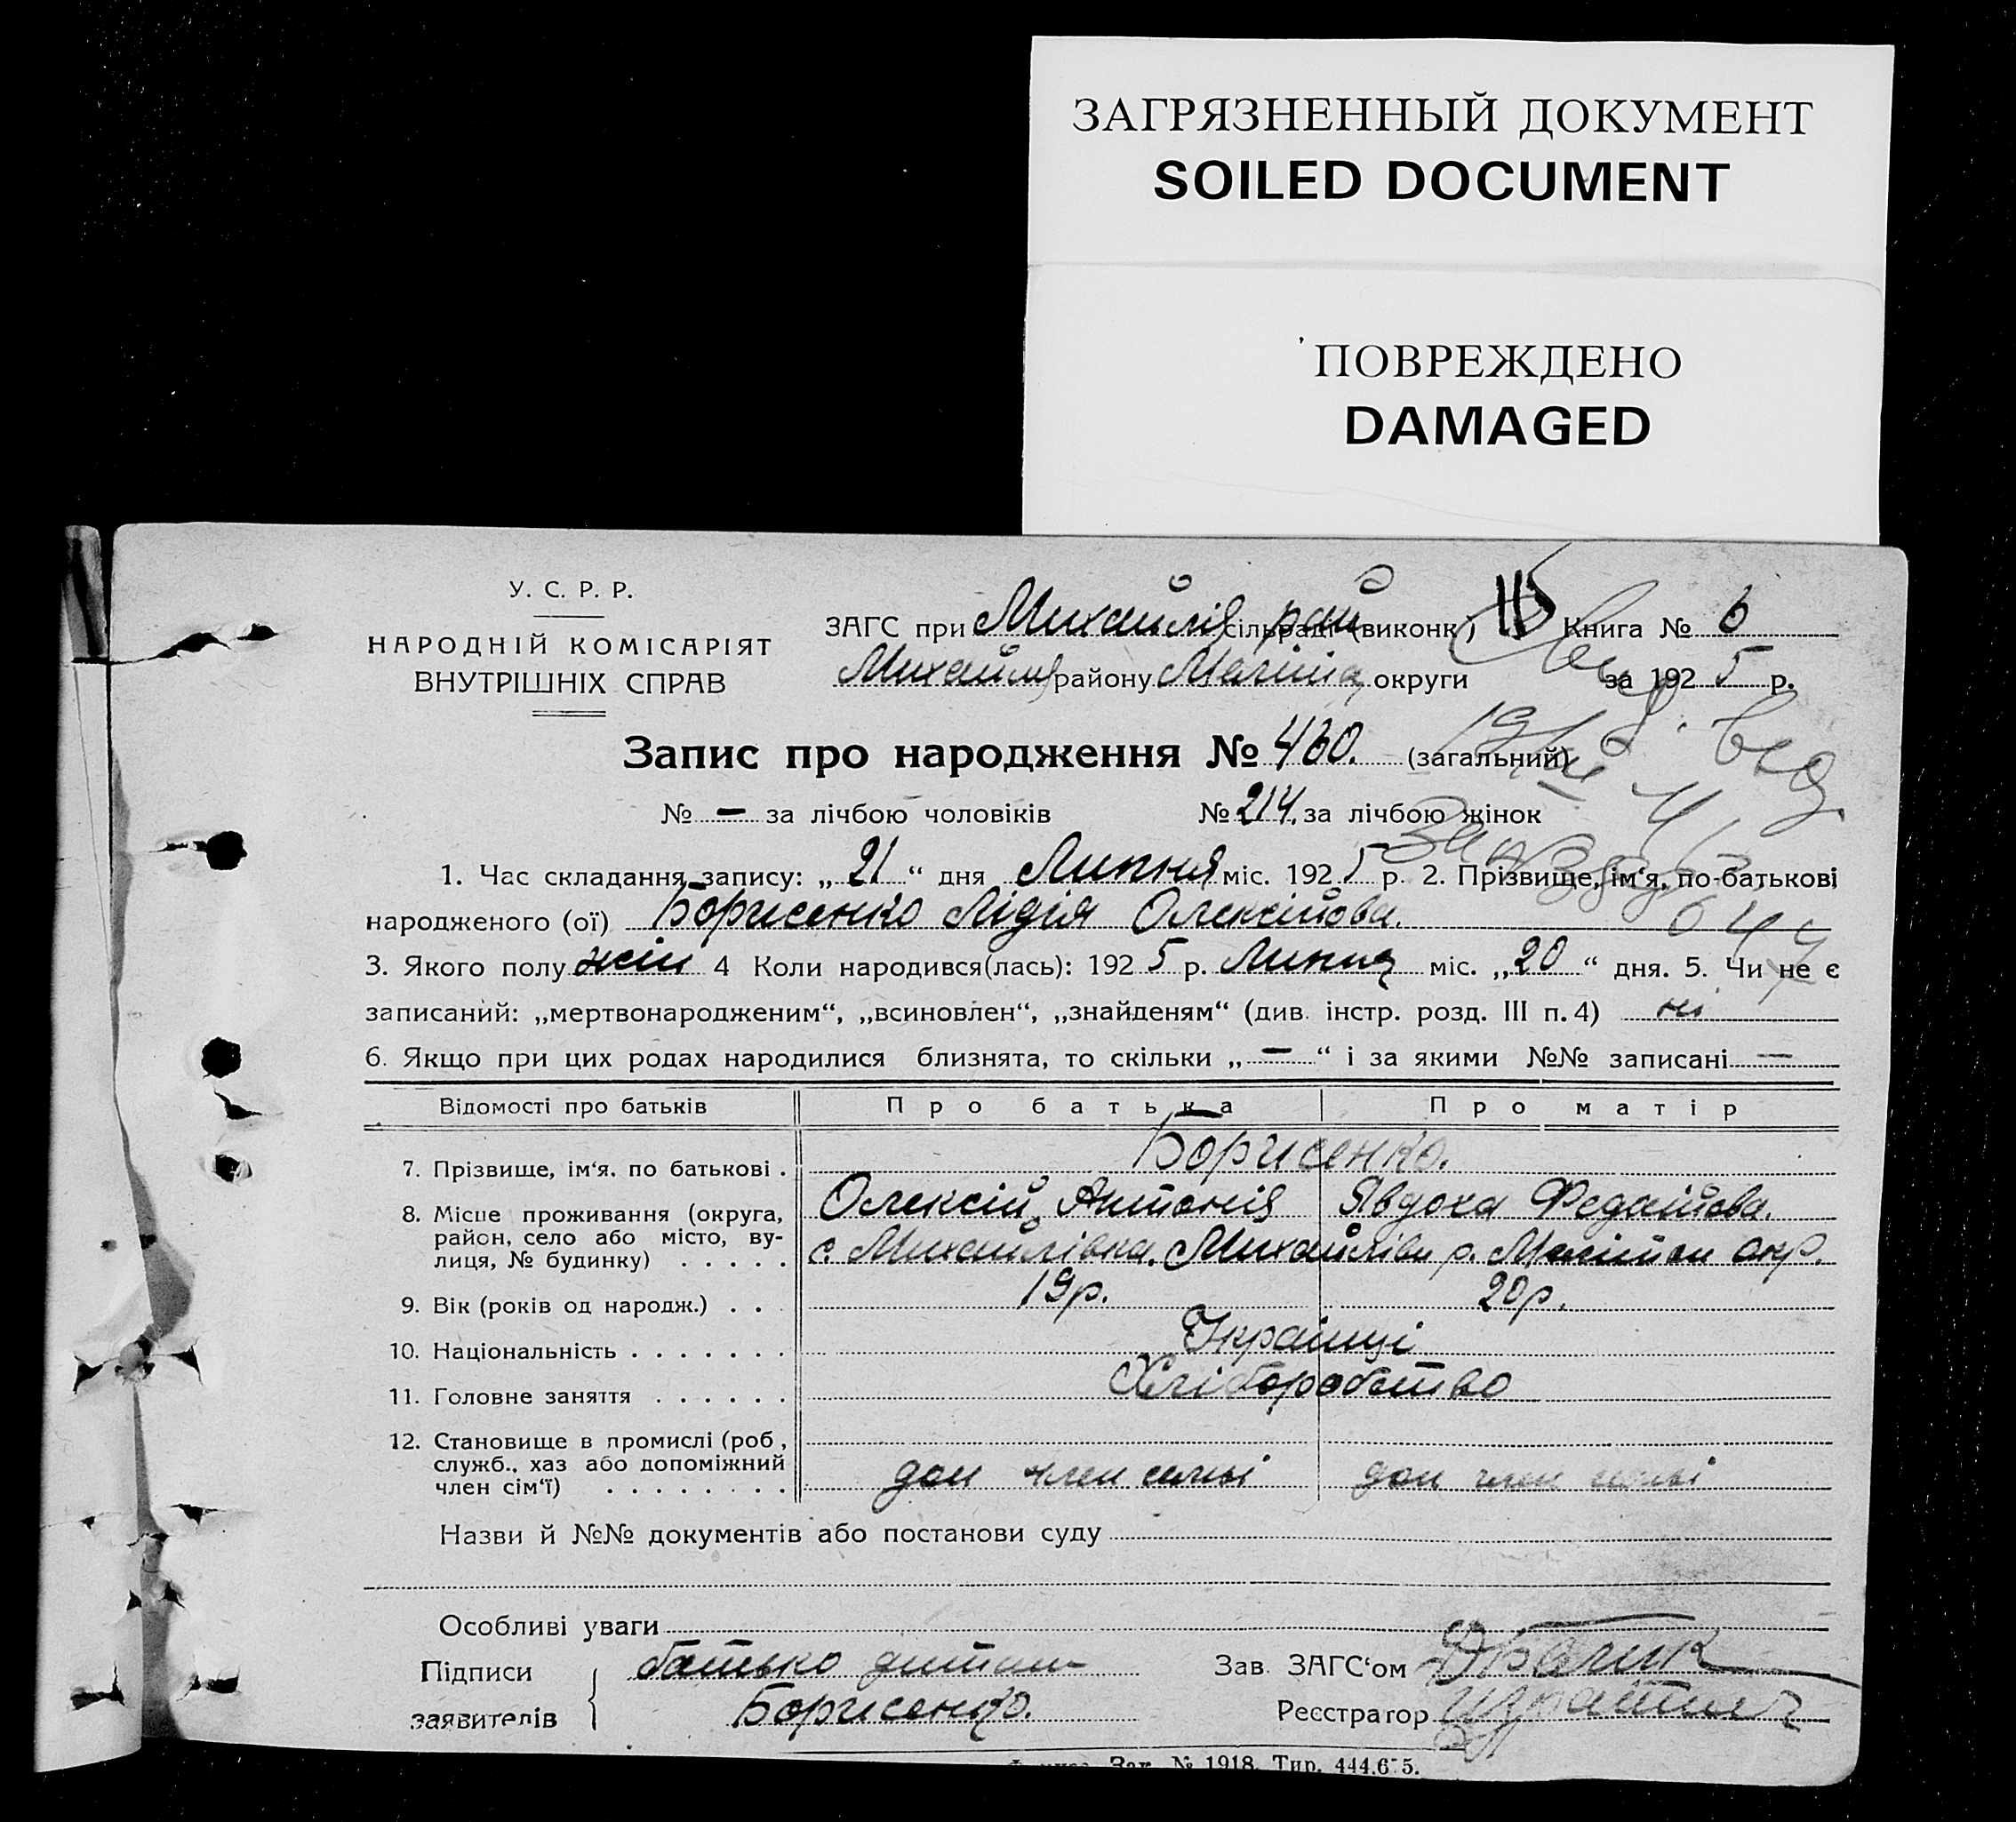 ЗАГРЯЗНЕННЫЙ ДОКУМЕНТ
SOILED DOCUMENT
ПОВРЕЖДЕНО
DAMAGED
У. С. Р. Р.
НАРОДНІЙ КОМІСАРІЯТ
ВНУТРІШНІХ СПРАВ
ЗАГС при Михайлів сільраді (виконк) рай Книга № 6
Михайлів району округи за 1925 р.
Запис про народження № 460. (загальний)
№ — за лічбою чоловіків № 214. за лічбою жінок
1. Час складання запису: „21“ дня Липня міс. 1925 р. 2. Прізвище, ім‘я, по-батькові
народженого (ої) Борисенко Лідія Олексійова.
3. Якого полу жін 4 Коли народився(лась): 1925 р. Липня міс. „20“ дня. 5. Чи не є
записаний: „мертвонародженим“, „всиновлен“, „знайденям“ (див. інстр. розд. III п. 4) ні
6. Якщо при цих родах народилися близнята, то скільки „—“ і за якими №№ записані —
Відомості про батьків Про батька Про матір
7. Прізвище, ім‘я, по батькові . Борисенко.
Олексій Антонів Явдоха
8. Місце проживання (округа,
район, село або місто, ву-
лиця, № будинку) . . . . . с. Михайлівка. Михайлівк р. окр.
9. Вік (років од народж.) . . 19р. 20р.
10. Національність . . . . . . . Українці
11. Головне заняття . . . . . . Хліборобство
12. Становище в промислі (роб.,
служб., хаз або допоміжний
член сім‘ї) . . . . . . . . доп член семьі доп член семьі
Назви й №№ документів або постанови суду
Особливі уваги
Підписи батько дитини Зав. ЗАГС‘ом
заявителів Борисенко. Реєстратор
Зак. № 1918. Тир. 444.675.